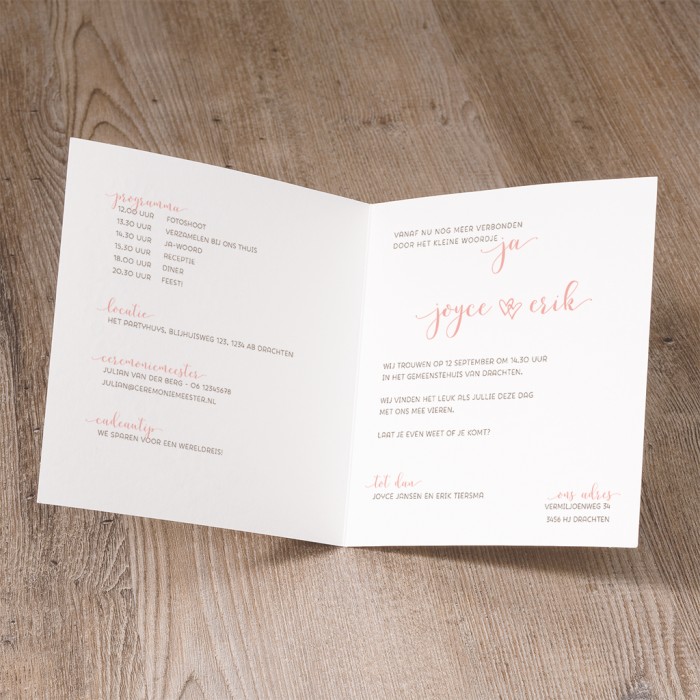 programma
12.00 UUR FOTOSHOOT
13.30 UUR VERZAMELEN BIJ ONS THUIS
14.30 UUR JA-WOORD
15.30 UUR RECEPTIE
18.00 UUR DINER
20.30 UUR FEEST!
locatie
HET PARTYHUYS, BLIJHUISWEG 123, 1234 AB DRACHTEN
ceremoniemeester
JULIAN VAN DER BERG - 06 12345678
JULIAN@CEREMONIEMEESTER.NL
cadeautip
WE SPAREN VOOR EEN WERELDREIS!
VANAF NU NOG MEER VERBONDEN
DOOR HET KLEINE WOORDJE ja
joyce erik
WIJ TROUWEN OP 12 SEPTEMBER OM 14.30 UUR
IN HET GEMEENSTEHUIS VAN DRACHTEN.
WIJ VINDEN HET LEUK ALS JULLIE DEZE DAG
MET ONS MEE VIEREN.
LAAT JE EVEN WEET OF JE KOMT?
tot dan
JOYCE JANSEN EN ERIK TIERSMA
ons adres
VERMILJOENWEG 34
3456 HJ DRACHTEN